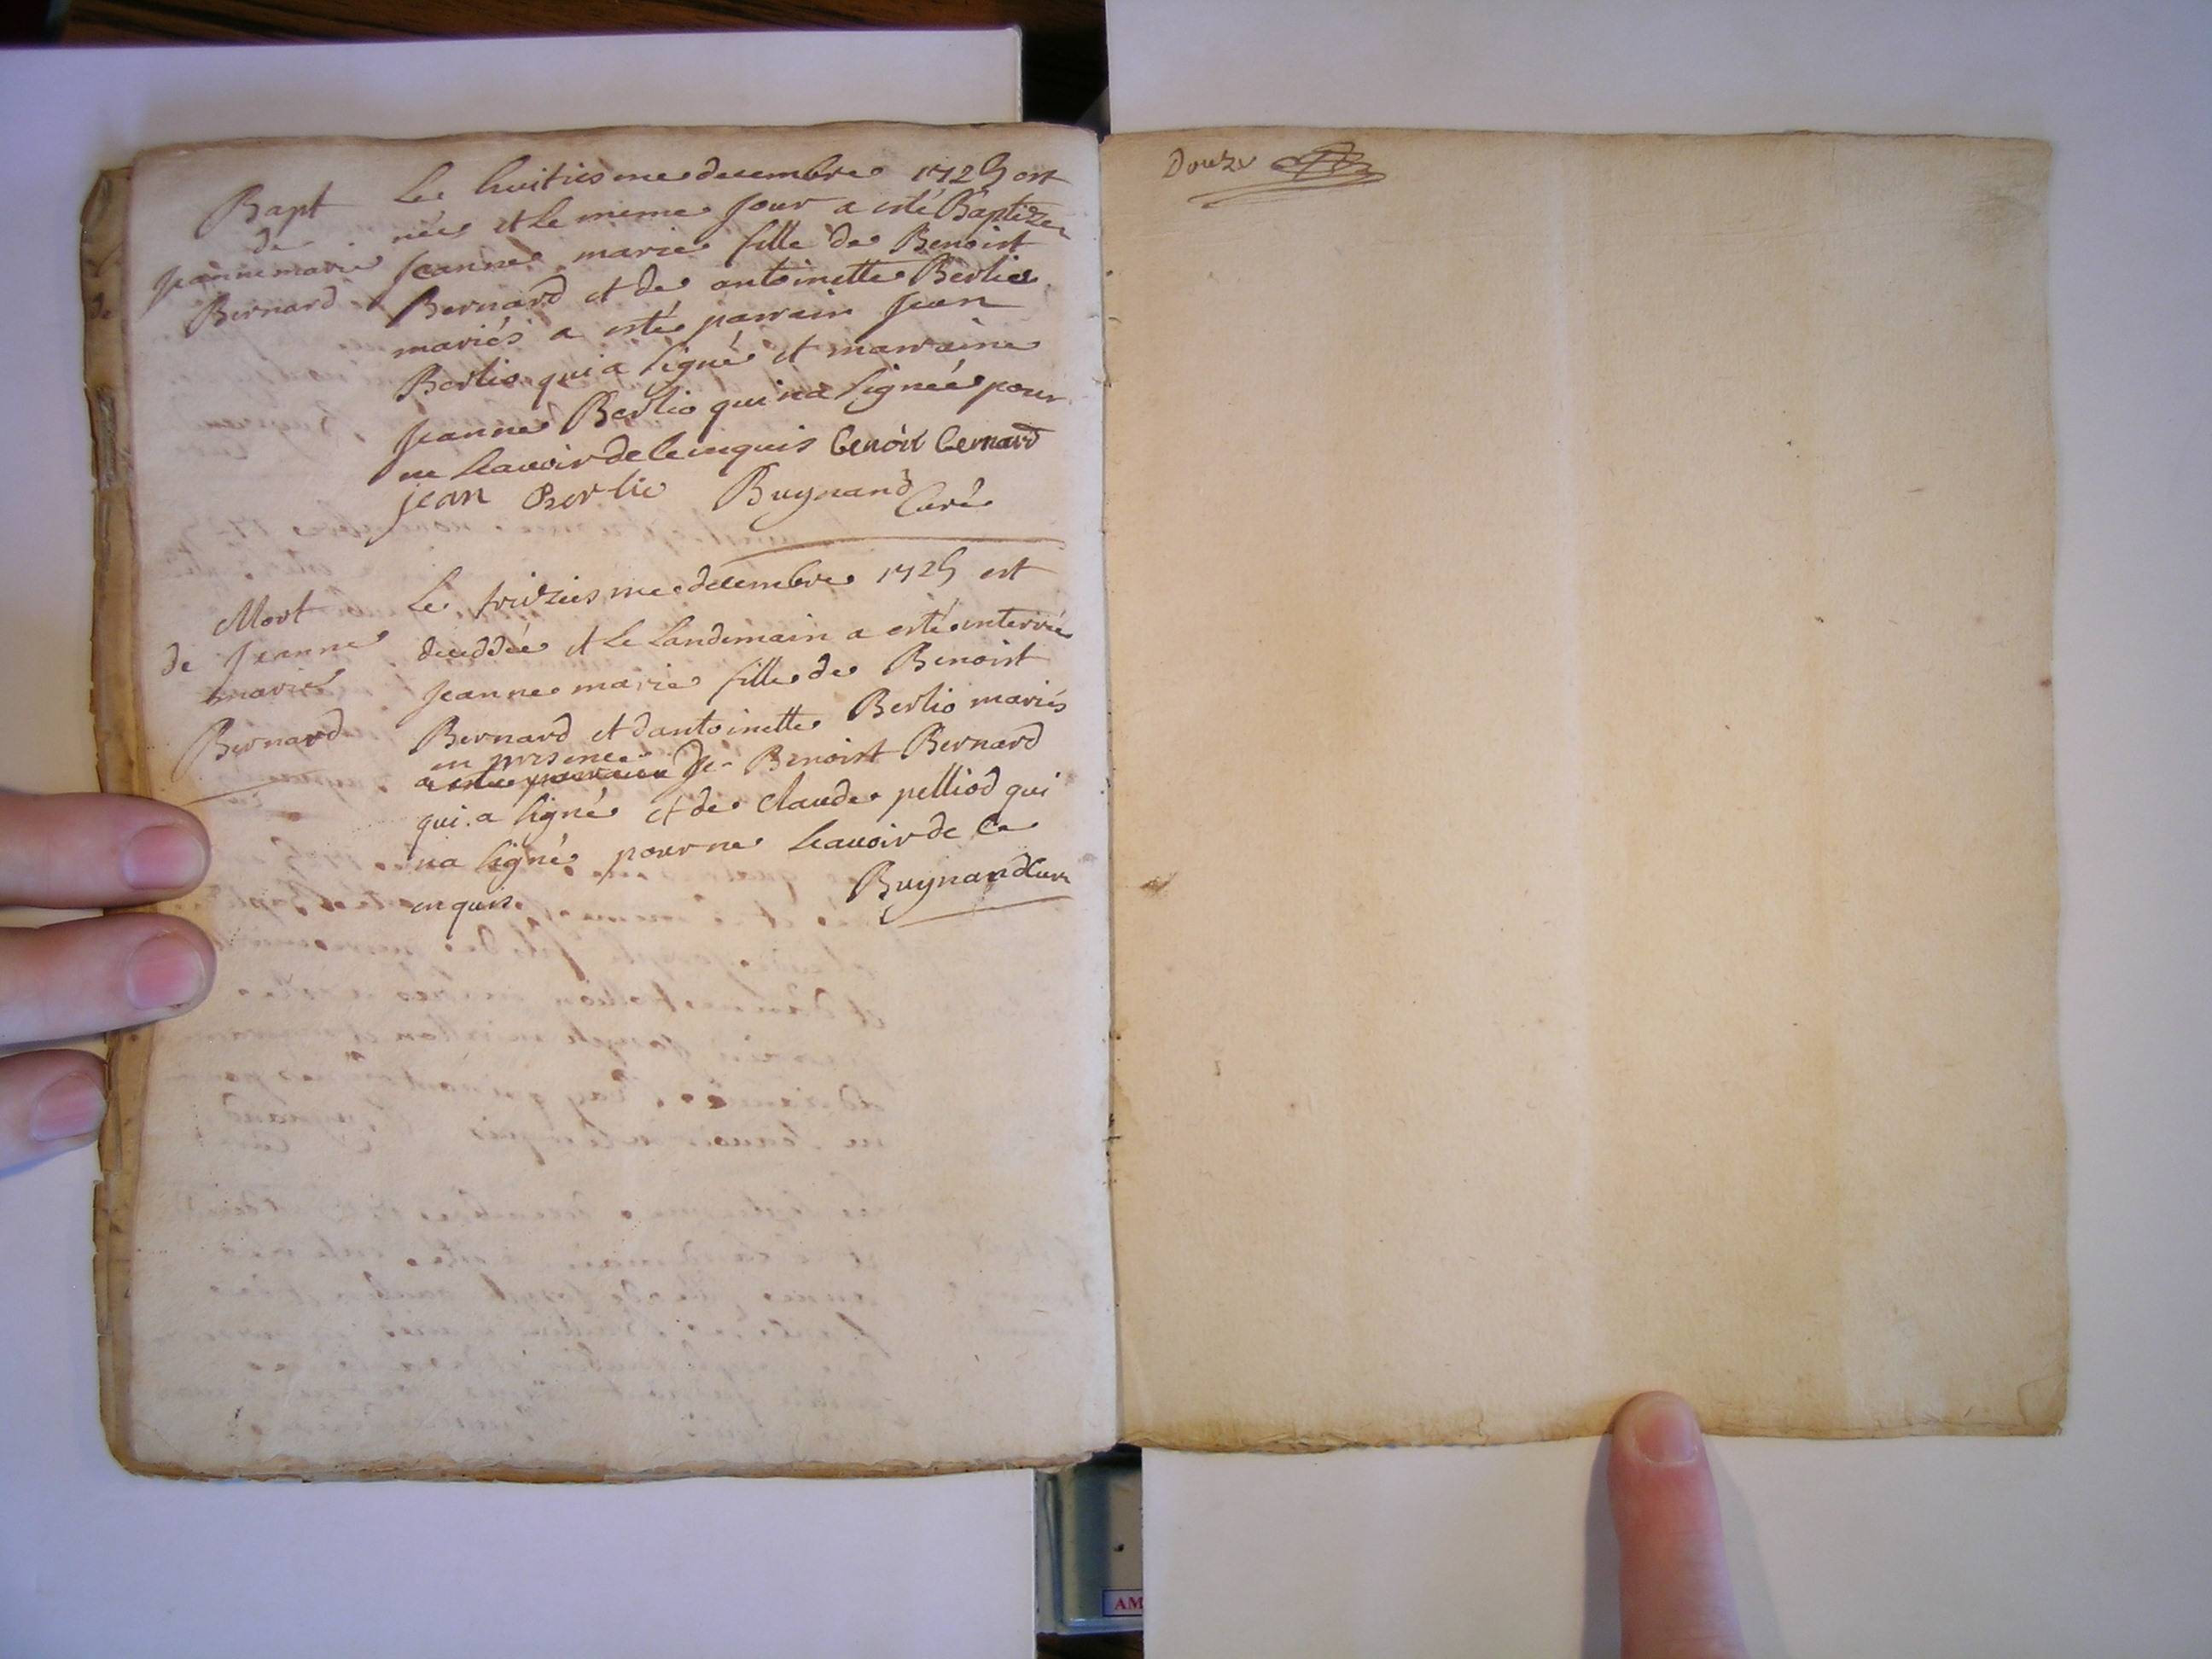 Bapt
de
jeanne marie
Bernard
Le huitiesme decembre 1725 est
née et le meme jour a esté Baptizée
jeanne marie fille de Benoist
Bernard et de antoinette Berlio
mariés a esté parrain jean
Berlio qui a signé et marraine
jeanne Berlio qui na signée pour
ne scavoir de ce enquis benoit bernard
jean Berlio Buynand Curé
Mort
de jeanne
marie
Bernard
Le treiziesme decembre 1725 est
deceddée et Le Landemain a esté enterrée
jeanne marie fille de Benoist
Bernard et dantoinette Berlio mariés
en presence
a esté parrain de Benoist Bernard
qui a signé et de Claude pelliod qui
na signé pour ne scavoir de ce
enquis. Buynand Curé
Douze
AM